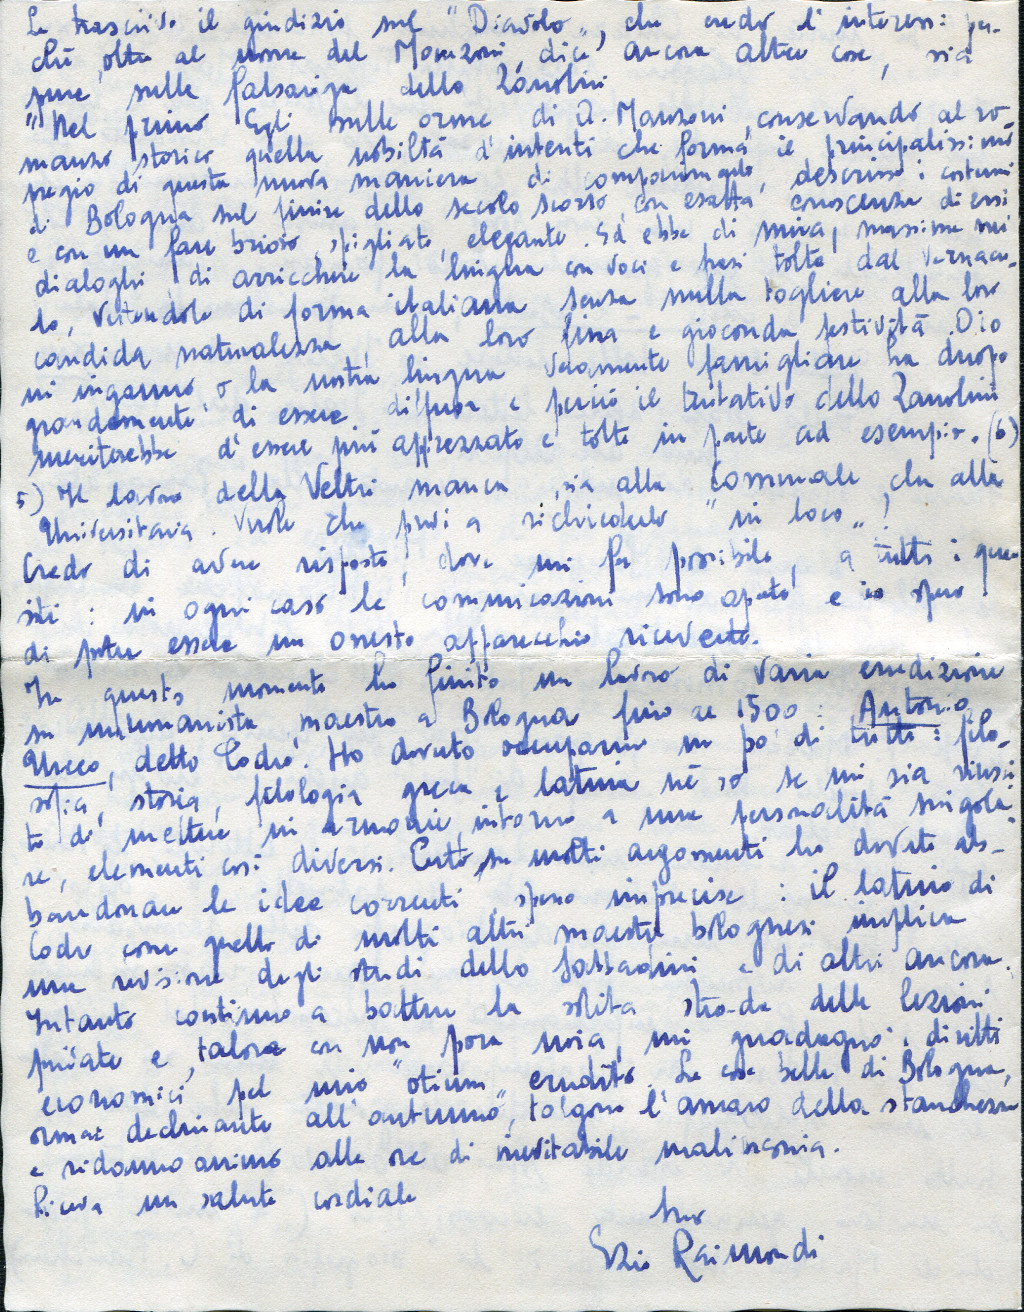 Le trascrivo il giudizio sul "Diavolo„, che credo l'interessi per-
ché, oltre al nome del Manzoni, dice ancora altre cose, sia
pure sulla falsariga dello Zanolini
"Nel primo Egli sulle orme di A. Manzoni, conservando al ro-
manzo storico quella nobiltà d'intenti che forma il principalissimo
pregio di questa nuova maniera di componimento, descrisse i costumi
di Bologna sul finire dello secolo scorso con esatta conoscenza di essi
e con un fare brioso, spigliato, elegante. Ed ebbe di mira, massime nei
dialoghi di arricchire la lingua con voci e frasi tolte dal vernaco-
lo, vestendole di forma italiana senza nulla togliere alla loro
candida naturalezza, alla loro fina e gioconda festività. O io
mi inganno, o la nostra lingua veramente famigliare ha duopo
grandemente di essere diffusa e perciò il tentativo dello Zanolini
meriterebbe d'essere più apprezzato e tolto in parte ad esempio. (6)
5) Il lavoro della Veltri manca, sia alla Comunale, che alla
Universitaria. Vuole che provi a richiederlo "in loco„!
Credo di avere risposto, dove mi fu possibile, a tutti i que-
siti: in ogni caso le comunicazioni sono aperte e io spero
di poter essere un onesto apparecchio ricevente.
In questo momento ho finito un lavoro di varia erudizione
su un umanista, maestro a Bologna fino al 1500: Antonio
Urceo, detto Codro. Ho dovuto occuparmi un po' di tutto: filo-
sofia, storia, filologia greca e latina né so se mi sia riusci-
to di mettere in armonia, intorno a una personalità singola-
re, elementi così diversi. Certo, su molti argomenti ho dovuto ab-
bandonare le idee correnti, spesso imprecise: il latino di
Codro come quello di molti altri maestri bolognesi implica
una revisione degli studi dello Sabbadini e di altri ancora.
Intanto continuo a battere la solita strada delle lezioni
private e, talora con non poca noia, mi guadagno i diritti
economici pel mio "otium„ erudito. Le cose belle di Bologna,
ormai declinante all'autunno, tolgono l'amaro della stanchezza
e ridanno animo alle ore di inevitabile malinconia.
Riceva un saluto cordiale
Suo
Ezio Raimondi